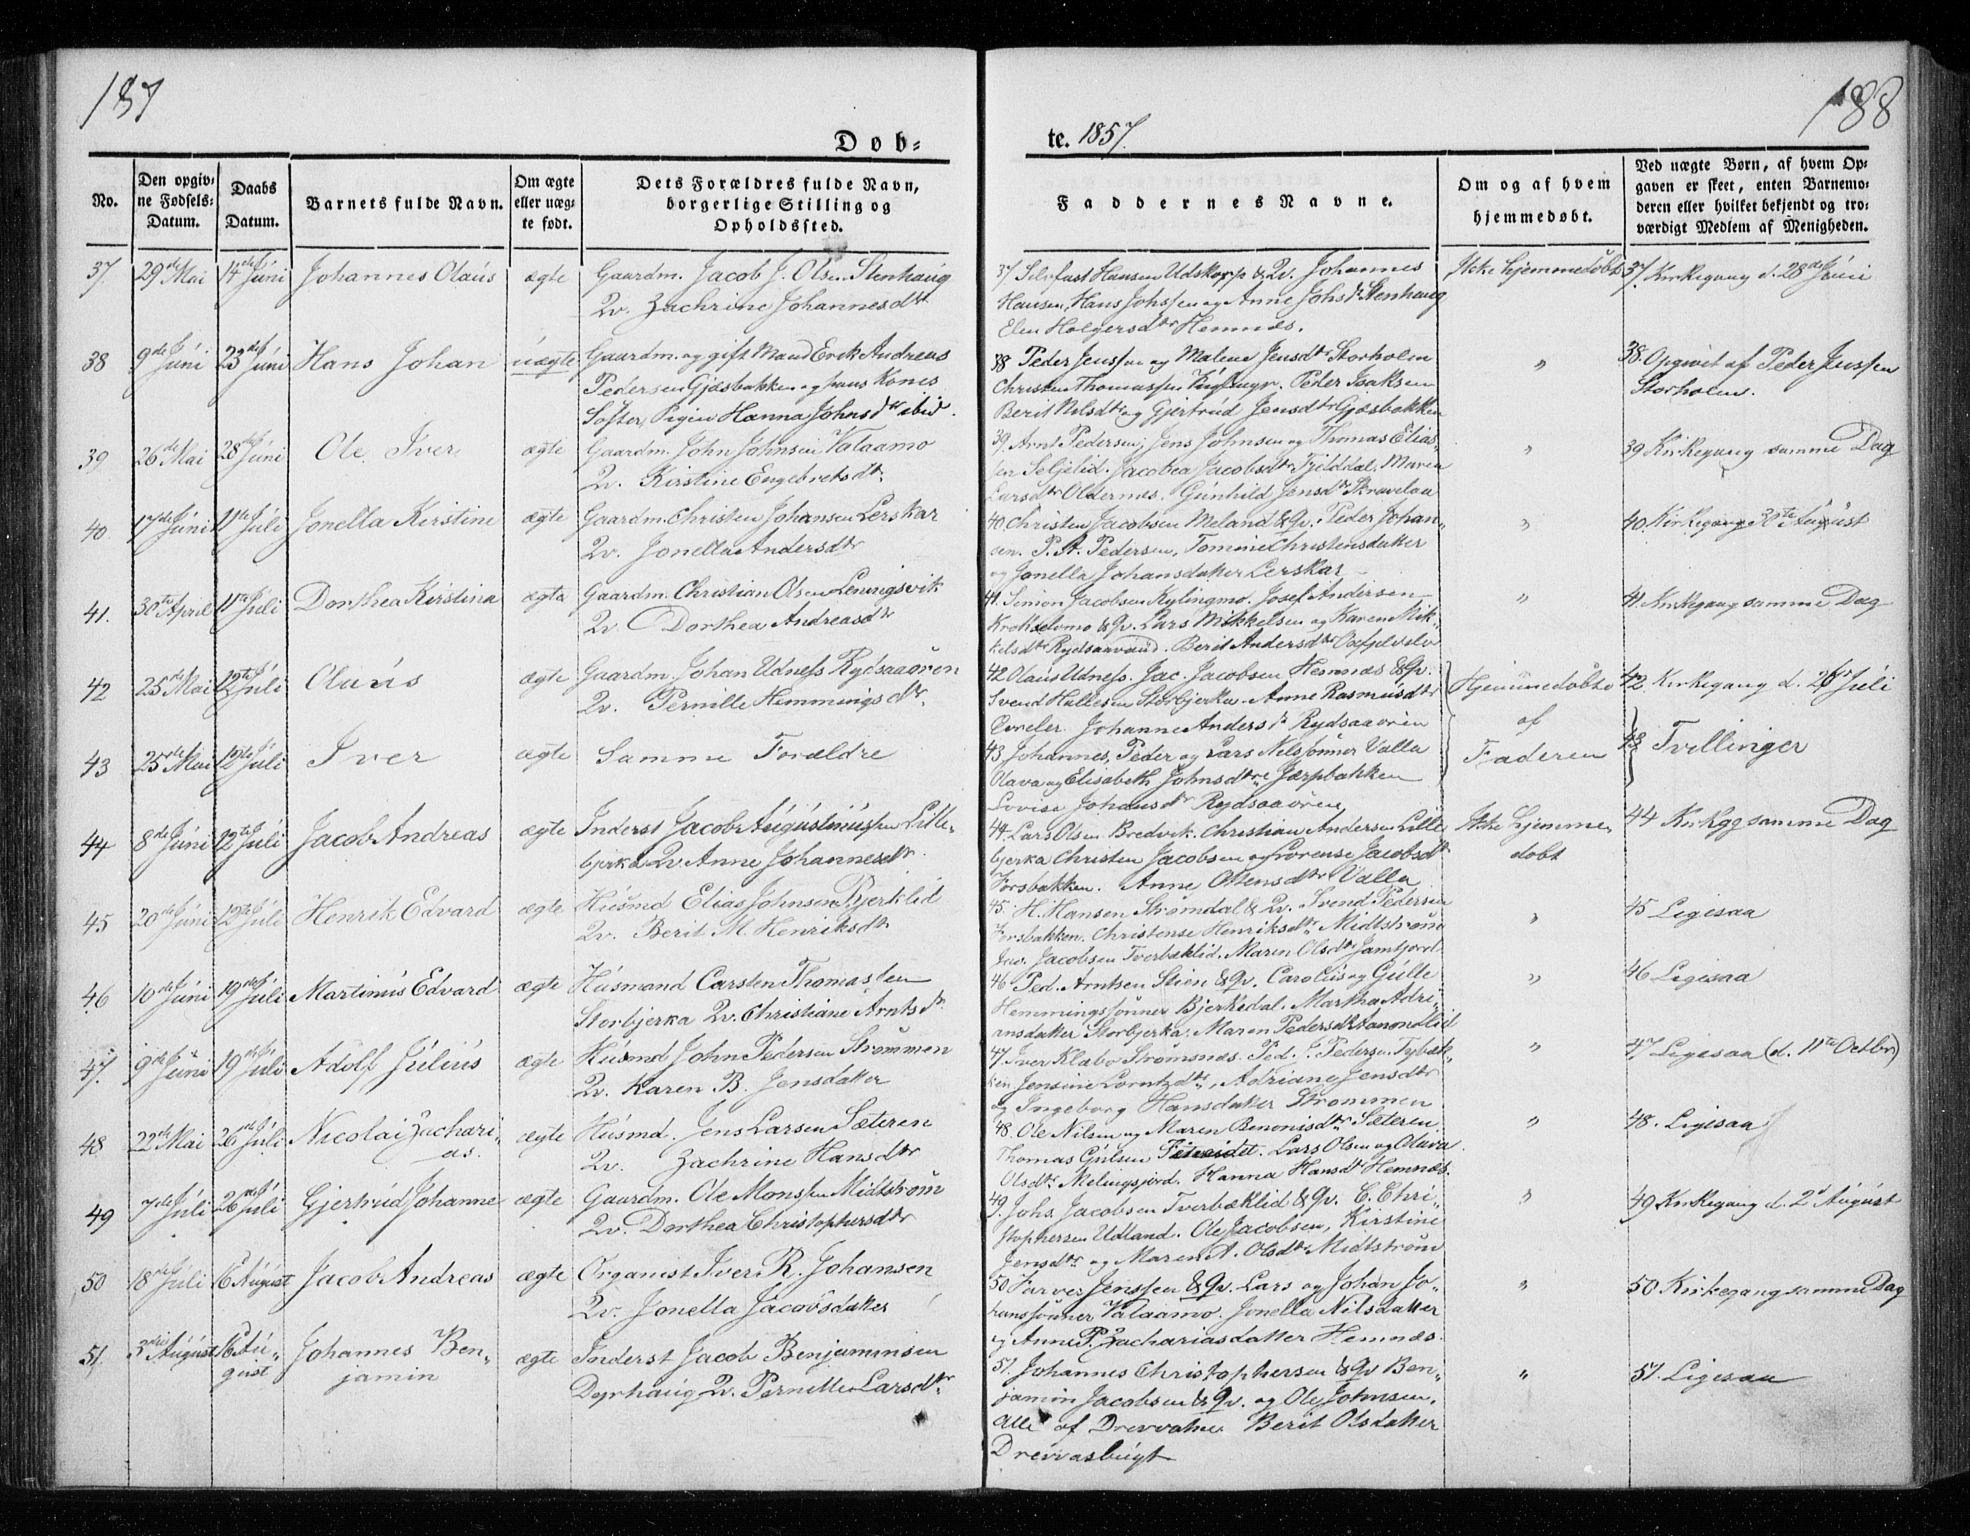 187
188
Døb=
te. 1857.
No.
Den opgiv=
ne Fødsels=
Datum.
Daabs
Datum.
Barnets fulde Navn.
Om ægte
eller uæg=
te født.
Dets Forældres fulde Navn,
borgerlige Stilling og
Opholdssted.
Faddernes Navne.
Om og af hvem
hjemmedøbt.
Ved uægte Børn, af hvem Op=
gaven er skeet, enten Barnemo=
deren eller hvilket bekjendt og tro=
værdigt Medlem af Menigheden.
37. 29de Mai 14de Juni Johannes Olaus ægte Gaardm. Jacob J. Olsen Stenhaug
Qv. Zachrine Johannesdtr
37 Selvfast Hansen Udskorp & Qv. Johannes
Hansen, Hans Johssen og Anne Johsdr Stenhaug
Elen Holgersdtr Hemnæs.
Ikke hjemmedøbt
37. Kirkegang d. 28de Juni
38 9de Juni 23de Juni Hans Johan uægte Gaardm. og gift Mand Erik Andreas
Pedersen Gjæsbakken og hans Kones
Søster, Pigen Hanna Johnsdtr ibid.
38 Peder Jenssen og Malene Jensdtr Storholm
Christen Thomassen Peder Isaksen
Berit Nilsdtr og Gjertrud Jensdtr Gjæsbakken
"
38. Opgivet af Peder Jenssen
Storholm.
39 26de Mai 28de Juni Ole Iver ægte Gaardm. John Johnsen Valaamo
Qv. Kirstine Engebretsdtr
39. Arnt Pedersen, Jens Johnsen og Thomas Elias=
sen Seljelid. Jacobea Jacobsdtr Fjelddal, Maren
Larsdtr Oldernæs. Gunhild Jensdtr Skravelaa
"
39 Kirkegang samme Dag
40 17de Juni 11te Juli Jonella Kirstine ægte Gaardm. Christen Johansen Lerskar
Qv. Jonella Andersdtr
40 Christen Jacobsen Meland & Qv. Peder Johan=
sen. P. A. Pedersen, Tomine Christensdatter
og Jonella Johansdatter Lerskar
"
40. Kirkegang 30te August
41. 30te April 11te Juli Dorthea Kirstina ægte Gaardm. Christian Olsen Leningsvik
Qv. Dorthea Andreasdtr
41. Simon Jacobsen Kylingmo. Josef Andersen
Krokselvmo & Qv. Lars Mikkelsen og Karen Mik=
kelsdtr Rydsaavand. Berit Andersdtr
"
41. Kirkegang samme Dag
42 25de Mai 12te Juli Olaus ægte Gaardm. Johan Udness Rydsaaøren
Qv. Pernille Hemmingsdtr
42 Olaus Udness. Jac. Jacobsen Hemnæs & Qv.
Svend Hallesen Storbjerka. Anne Rasmusdtr
Johanne Andersdr Rydsaaøren
Hjemmedøbte
af
Faderen
42 Kirkegang d. 26de Juli
43 25de Mai 12te Juli Iver ægte Samme Forældre
43 Johannes, Peder og Lars Nilssønner Valla
Olava og Elisabeth Johnsdtre Jærpbakken
Lovise Johansdtr Rydsaaøren
43 Tvillinger
44 8de Juni 12te Juli Jacob Andreas ægte Inderst Jacob Augustinussen Lille=
bjerka Qv. Anne Johannesdtr
44. Lars Olsen Bredvik. Christian Andersen Lille
bjerka Christen Jacobsen og Lorense Jacobsdtr
Forsbakken. Anne Ottensdtr Valla
Ikke hjemme=
døbt
44 Kirkgg samme Dag
45 20de Juni 12te Juli Henrik Edvard ægte Husmd Elias Johnsen Bjerklid
Qv. Berit M. Henriksdtr
45. H. Hansen Strømdal & Qv. Svend Pedersen
Forsbakken. Christense Henriksdtr Midtstrøm
Jac. Jacobsen Tverbæklid. Maren Olsdtr Jamtjord
"
45 Ligesaa
46 10de Juni 19de Juli Martinus Edvard ægte Husmand Carsten Thomassen
Storbjerka Qv. Christiane Arntsdr
46 Ped. Arntsen Stien & Qv. Carolus og Gulle
Hemmingssønner Bjerkedal. Martha Adri=
ansdatter Storbjerka. Maren Pedersdtr
"
46 Ligesaa
47. 9de Juni 19de Juli Adolf Julius ægte Husmd John Pedersen Strømmen
Qv. Karen B. Jensdatter
47. Iver Klæbo Strømsnæs. Ped. J. Pedersen Tybæk=
ken Jensine Lorntzdtr, Adriane Jensdtr
og Ingeborg Hansdatter Strømmen
"
47 Ligesaa (d. 11te Octbr)
48 22de Mai 26de Juli Nicolai Zachari=
as. ægte Husmd. Jens Larsen Sæteren
Qv. Zachrine Hansdtr
48. Ole Nilsen og Maren Benonisdtr Sæteren.
Thomas Gulsen Lars Olsen og Olava
Olsdtr Melingsjord. Hanna Hansdtr Hemnæs.
"
48. Ligesaa
49 7de Juli 26de Juli Gjertrud Johanne ægte Gaardm. Ole Monssen Midtstrøm
Qv. Dorthea Christophersdtr
49. Johs. Jacobsen Tverbæklid & Qv. C. Chri=
stophersen Udland. Ole Jacobsen, Kirstine
Jensdtr og Maren A. Olsdtr Midtstrøm
"
49 Kirkegang d. 2d August
50 18de Juli 16 August Jacob Andreas ægte Organist Iver R. Johansen
Qv. Jonella Jacobsdatter
50 Farver Jenssen & Qv. Lars og Johan Jo=
hanssønner Valaamo. Jonella Nilsdatter
og Anne P. Zachariasdatter Hemnæs.
"
50 Kirkegang samme Dag
51. 3die August 16 Au=
gust Johannes Ben=
jamin ægte Inderst Jacob Benjaminsen
Dyrhaug Qv. Pernille Larsdtr
51. Johannes Christophersen & Qv Ben=
jamin Jacobsen & Qv. og Ole Johnsen,
alle af Drevvatne. Berit Olsdatter
Drevvasbugt
"
51. Ligesaa